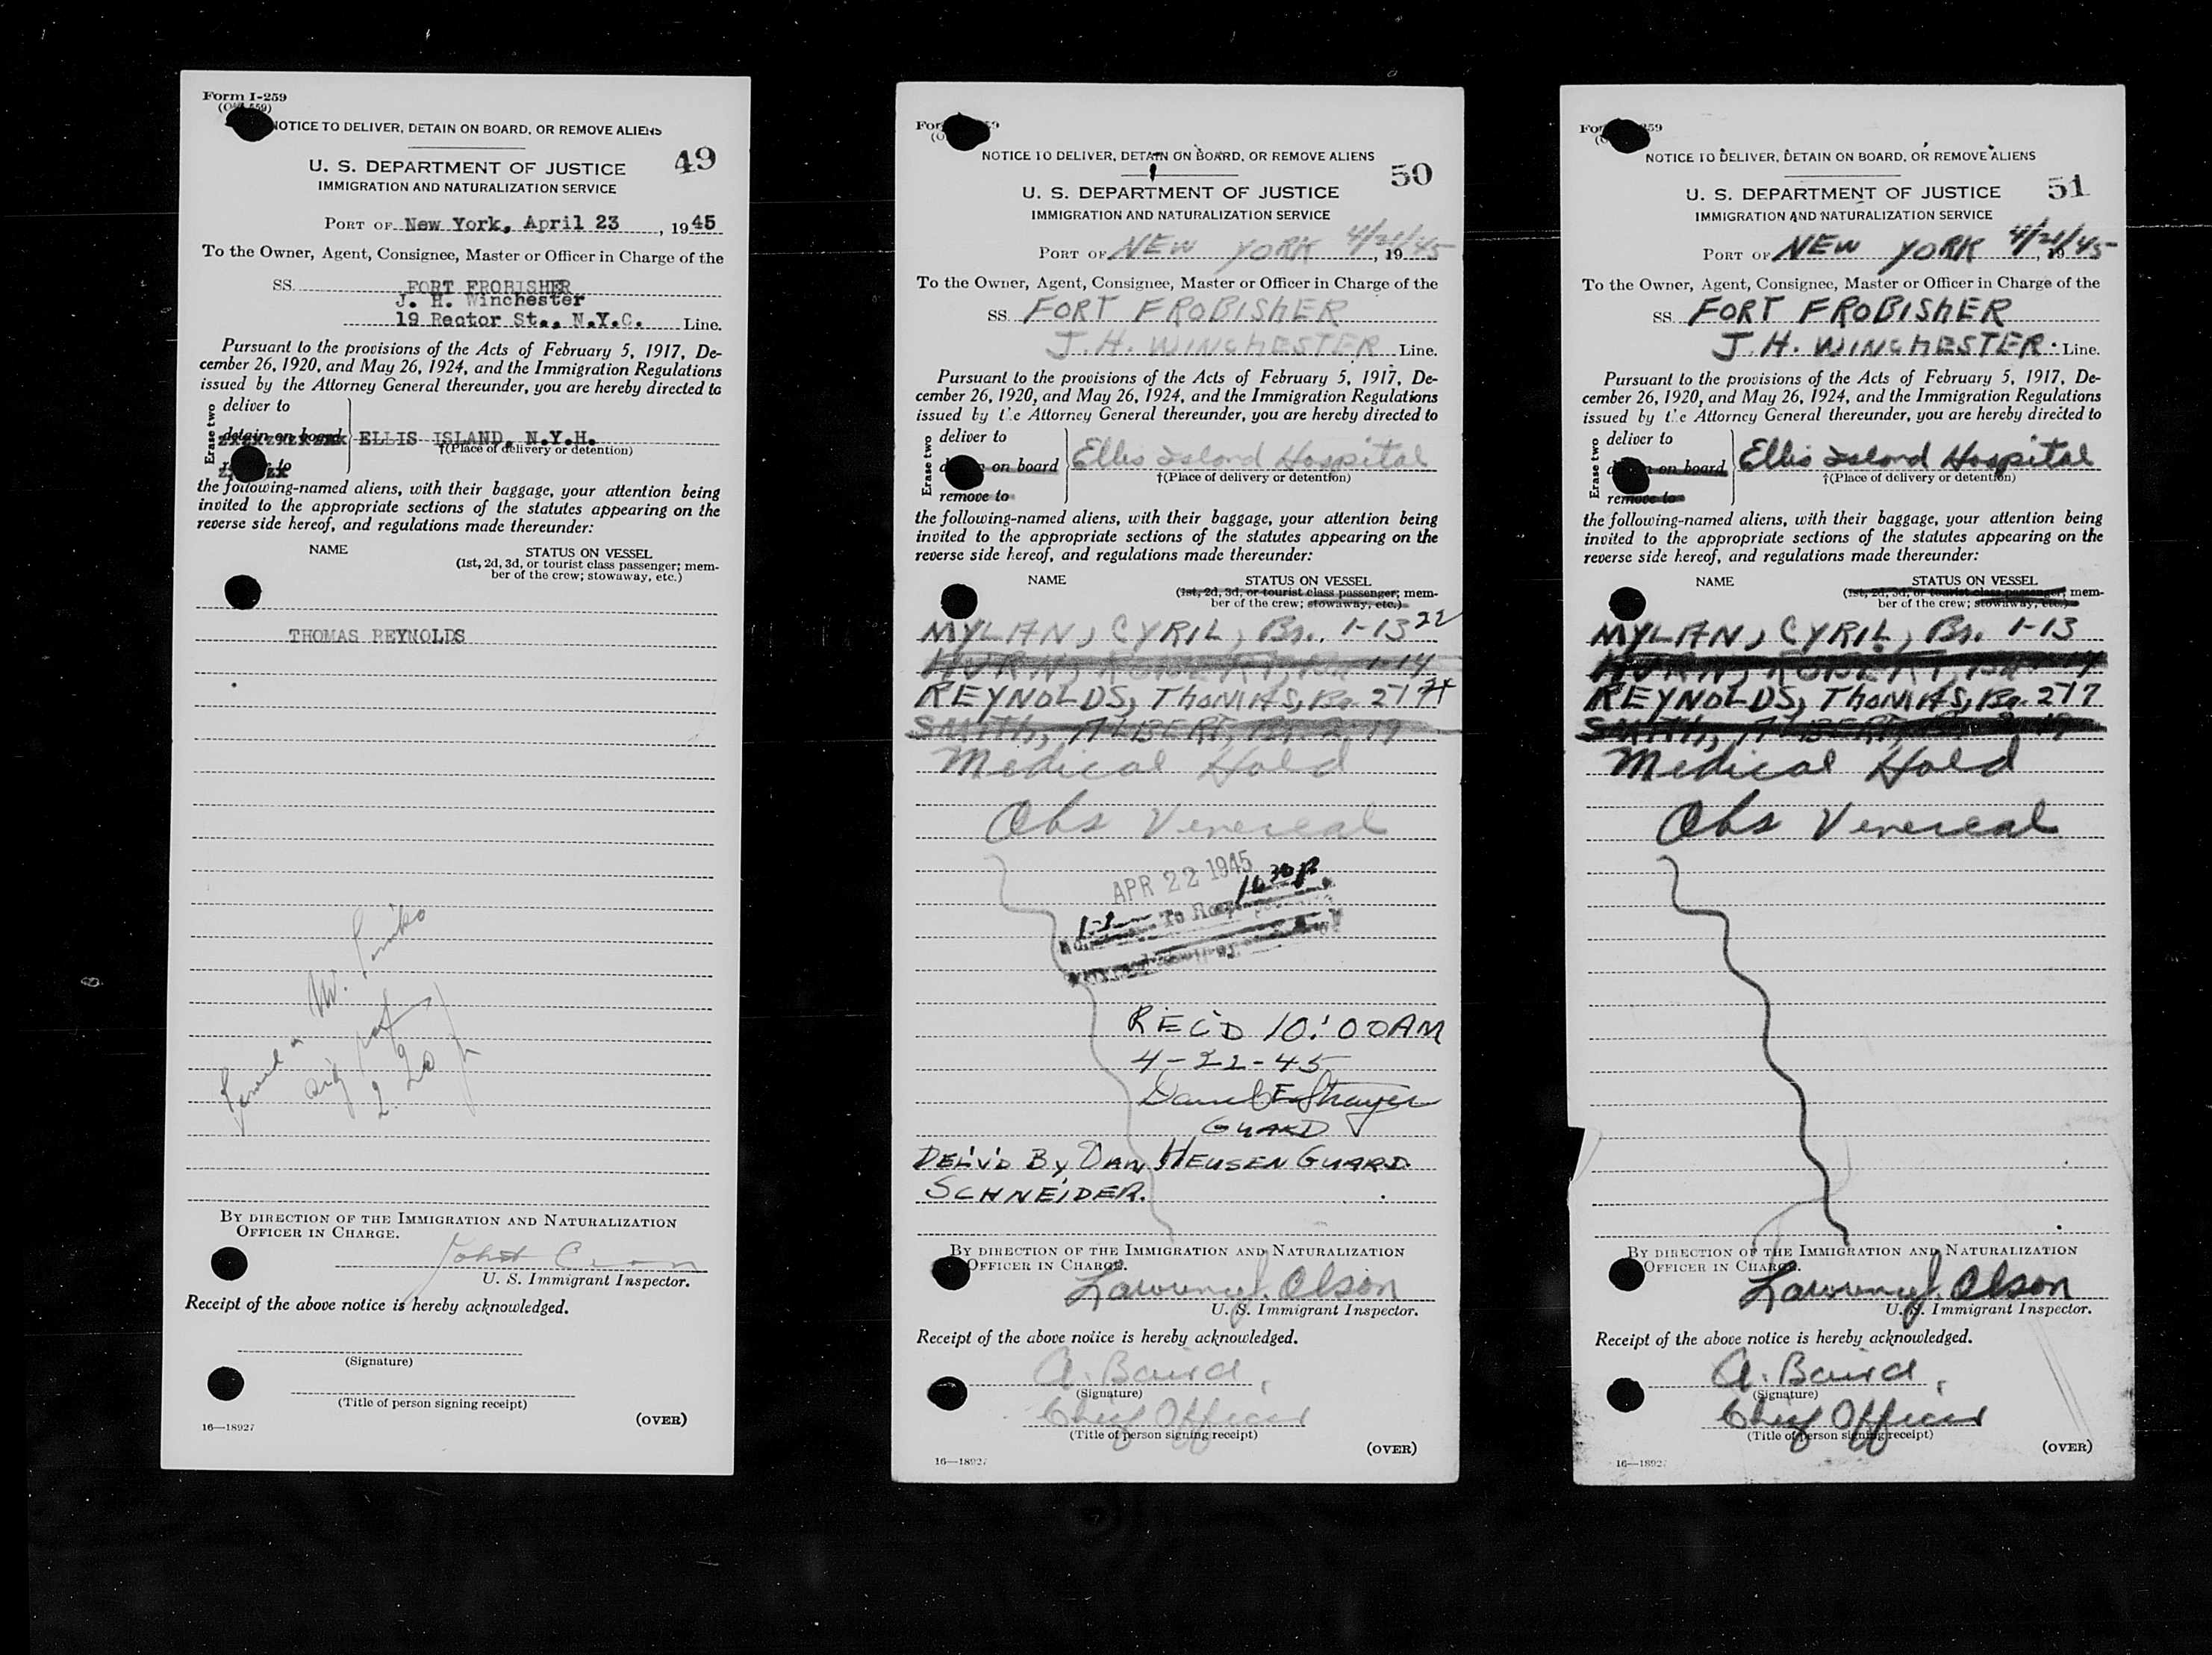 Form I-259
NOTICE TO DELIVER, DETAIN ON BOARD, OR REMOVE ALIENS
49
U. S. DEPARTMENT OF JUSTICE
IMMIGRATION AND NATURALIZATION SERVICE
PORT OF New York, April 23, 1945
To the Owner, Agent, Consignee, Master or Officer in Charge of the
SS. FORT FROBISHER
J. H. Winchester
19 Rector St., N.Y.C. Line.
Pursuant to the provisions of the Acts of February 5, 1917, De-
cember 26, 1920, and May 26, 1924, and the Immigration Regulations
issued by the Attorney General thereunder, you are hereby directed to
Erase two
deliver to
detain on board
ELLIS ISLAND, N.Y.H.
†(Place of delivery or detention)
the following-named aliens, with their baggage, your attention being
invited to the appropriate sections of the statutes appearing on the
reverse side hereof, and regulations made thereunder:
NAME
STATUS ON VESSEL
(1st, 2d, 3d, or tourist class passenger; mem-
ber of the crew; stowaway, etc.)
THOMAS REYNOLDS
BY DIRECTION OF THE IMMIGRATION AND NATURALIZATION
OFFICER IN CHARGE.
U. S. Immigrant Inspector.
Receipt of the above notice is hereby acknowledged.
(Signature)
(Title of person signing receipt)
16—18927
(OVER)
NOTICE TO DELIVER, DETAIN ON BOARD, OR REMOVE ALIENS
50
U. S. DEPARTMENT OF JUSTICE
IMMIGRATION AND NATURALIZATION SERVICE
PORT OF NEW YORK 4/21/45, 19
To the Owner, Agent, Consignee, Master or Officer in Charge of the
SS. FORT FROBISHER
J. H. WINCHESTER Line.
Pursuant to the provisions of the Acts of February 5, 1917, De-
cember 26, 1920, and May 26, 1924, and the Immigration Regulations
issued by the Attorney General thereunder, you are hereby directed to
Erase two
deliver to
on board
remove to
Ellis Island Hospital
†(Place of delivery or detention)
the following-named aliens, with their baggage, your attention being
invited to the appropriate sections of the statutes appearing on the
reverse side hereof, and regulations made thereunder:
NAME
STATUS ON VESSEL
(1st, 2d, 3d, or tourist class passenger; mem-
ber of the crew; stowaway, etc.)
MYLAN, CYRIL, Br. 1-13 22
1-14
REYNOLDS, THOMAS, Br. 217
SMITH, ALBERT, Br. 2-19
Medical Hold
Obs Venereal
APR 22 1945
To
REC'D 10:00AM
4-22-45
GUARD
DEL'V'D By DAN HEUSEN GUARD
SCHNEIDER.
BY DIRECTION OF THE IMMIGRATION AND NATURALIZATION
OFFICER IN CHARGE.
Olson
U. S. Immigrant Inspector.
Receipt of the above notice is hereby acknowledged.
A. Baird,
(Signature)
Chief Officer
(Title of person signing receipt)
(OVER)
NOTICE TO DELIVER, DETAIN ON BOARD, OR REMOVE ALIENS
51
U. S. DEPARTMENT OF JUSTICE
IMMIGRATION AND NATURALIZATION SERVICE
PORT OF NEW YORK 4/21/45, 19
To the Owner, Agent, Consignee, Master or Officer in Charge of the
SS. FORT FROBISHER
J. H. WINCHESTER Line.
Pursuant to the provisions of the Acts of February 5, 1917, De-
cember 26, 1920, and May 26, 1924, and the Immigration Regulations
issued by the Attorney General thereunder, you are hereby directed to
Erase two
deliver to
on board
remove to
Ellis Island Hospital
†(Place of delivery or detention)
the following-named aliens, with their baggage, your attention being
invited to the appropriate sections of the statutes appearing on the
reverse side hereof, and regulations made thereunder:
NAME
STATUS ON VESSEL
(1st, 2d, 3d, or tourist class passenger; mem-
ber of the crew; stowaway, etc.)
MYLAN, CYRIL, Br. 1-13
REYNOLDS, THOMAS, Br. 217
SMITH, ALBERT, Br. 2-19
Medical Hold
Obs Venereal
BY DIRECTION OF THE IMMIGRATION AND NATURALIZATION
OFFICER IN CHARGE.
Olson
U. S. Immigrant Inspector.
Receipt of the above notice is hereby acknowledged.
A. Baird,
(Signature)
Chief Officer
(Title of person signing receipt)
(OVER)